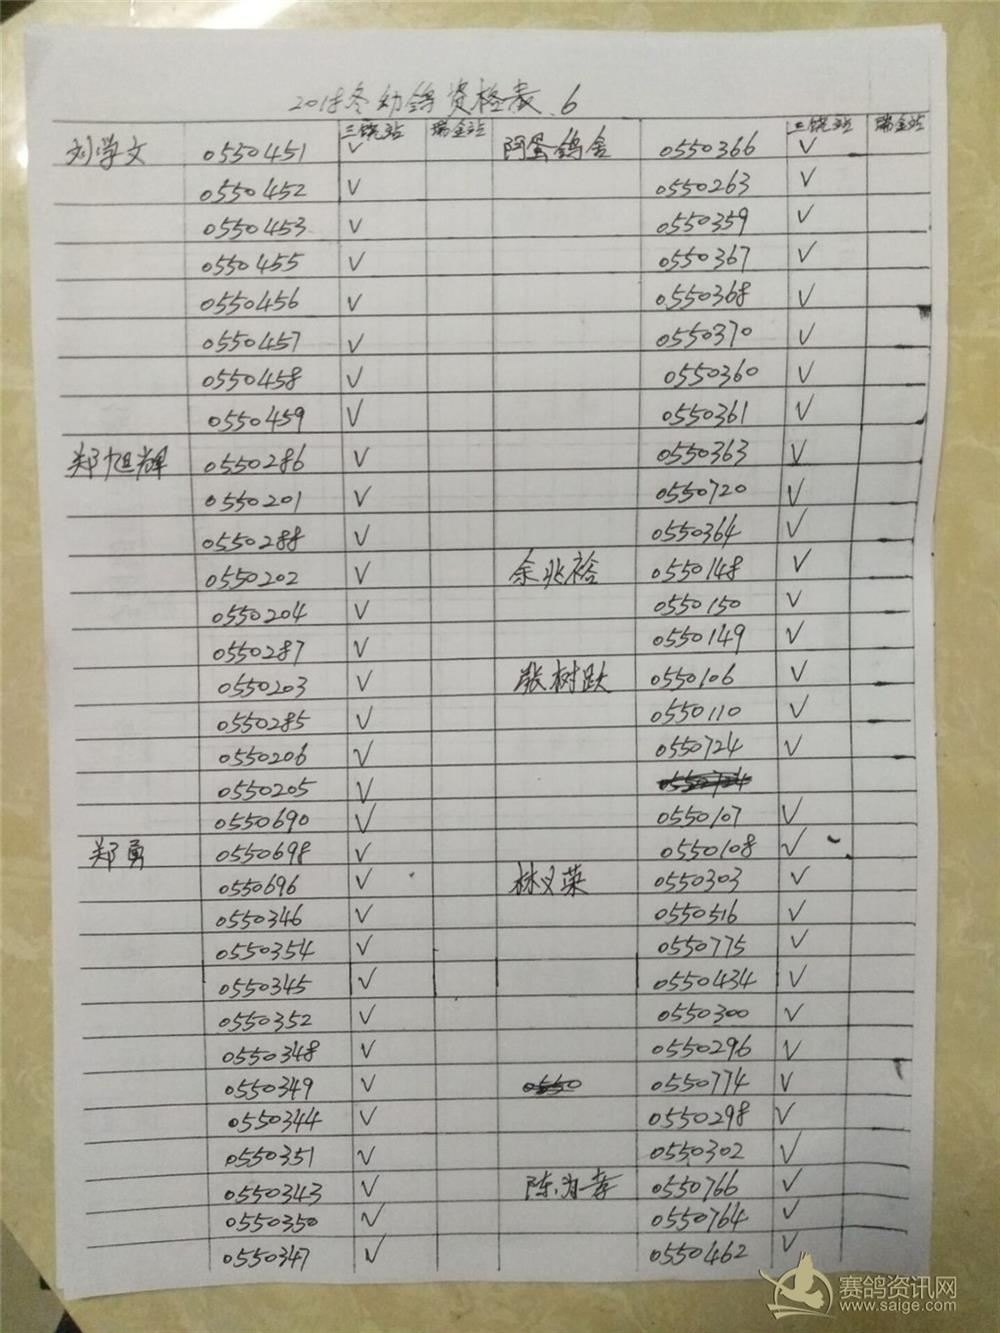 2018冬幼鸽资格表.6
三饶站 瑞金站 三饶站 瑞金站
刘学文 0550451 √ 阿蛋鸽舍 0550366 √
0550452 √ 0550263 √
0550453 √ 0550359 √
0550455 √ 0550367 √
0550456 √ 0550368 √
0550457 √ 0550370 √
0550458 √ 0550360 √
0550459 √ 0550361 √
郑旭辉 0550286 √ 0550363 √
0550201 √ 0550720 √
0550288 √ 0550364 √
0550202 √ 余兆裕 0550148 √
0550204 √ 0550150 √
0550287 √ 0550149 √
0550203 √ 张树跃 0550106 √
0550285 √ 0550110 √
0550206 √ 0550724 √
0550205 √
0550690 √ 0550107 √
郑勇 0550698 √ 0550108 √
0550696 √ 林义荣 0550303 √
0550346 √ 0550516 √
0550354 √ 0550775 √
0550345 √ 0550434 √
0550352 √ 0550300 √
0550348 √ 0550296 √
0550349 √ 0550 0550774 √
0550344 √ 0550298 √
0550351 √ 0550302 √
0550343 √ 陈为孝 0550766 √
0550350 √ 0550764 √
0550347 √ 0550462 √
赛鸽资讯网
www.saige.com